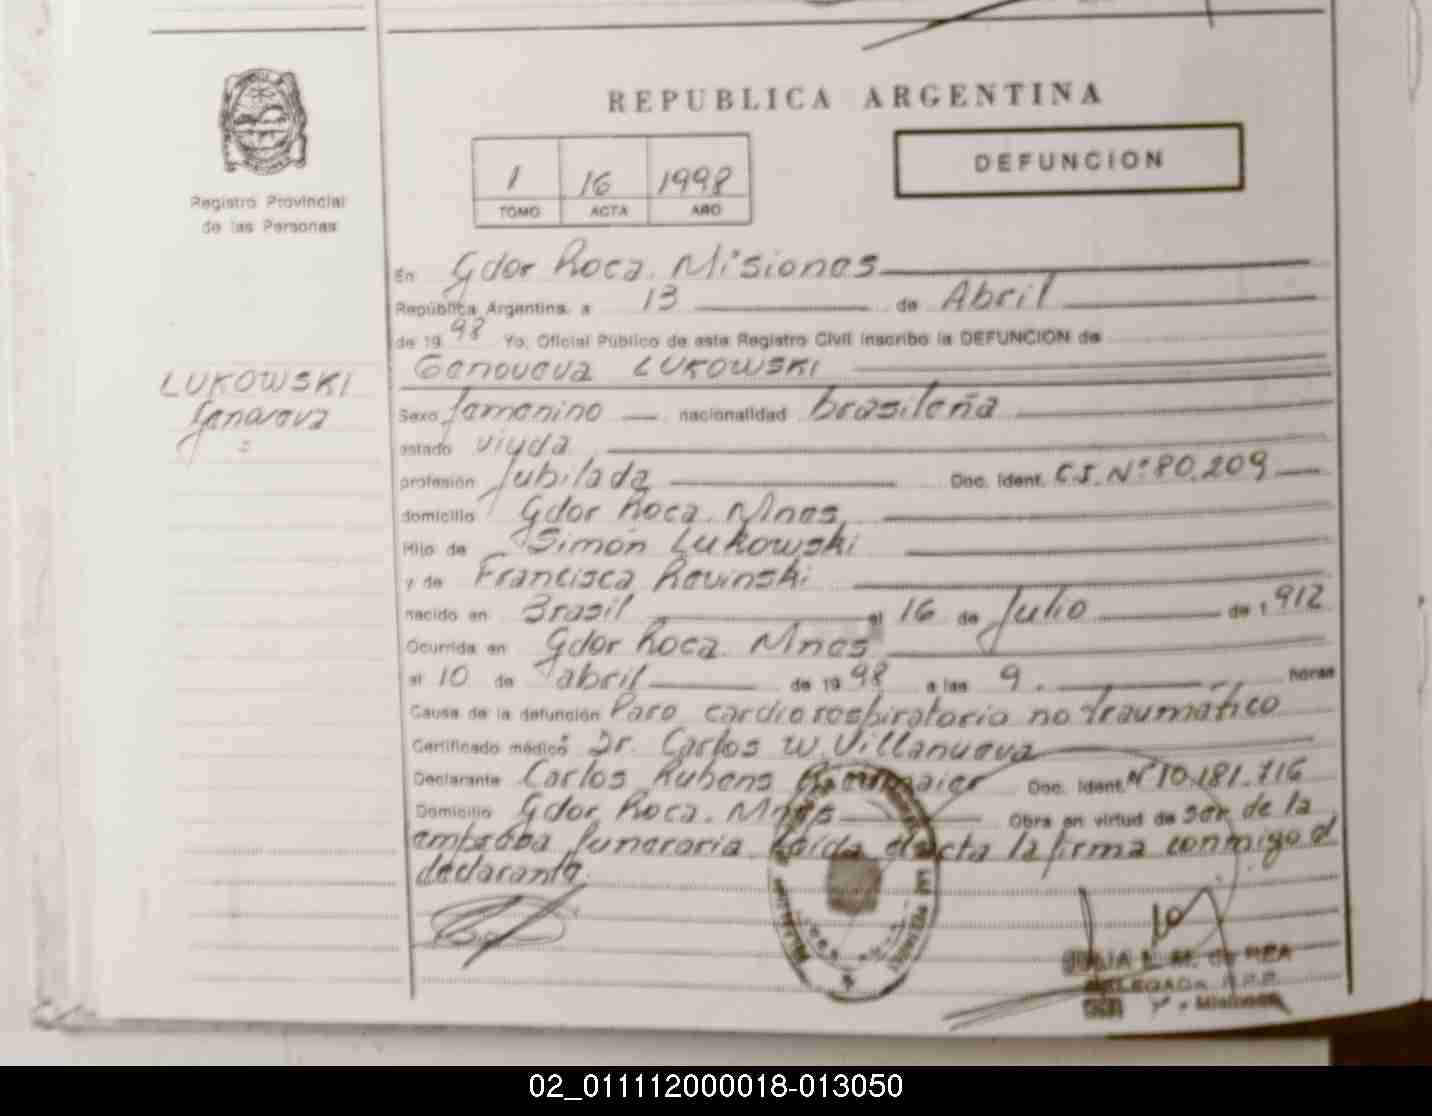 REPUBLICA ARGENTINA
DEFUNCION
1 16 1998
TOMO ACTA AÑO
Registro Provincial
de las Personas
En Gdor Roca. Misiones
República Argentina, a 13 de Abril
de 1998 Yo, Oficial Público de este Registro Civil inscribo la DEFUNCION de
Genoveva LUKOWSKI
LUKOWSKI
Genoveva
Sexo femenino nacionalidad brasileña
estado viuda
profesión Jubilada Doc. Ident. C.I. Nº 80.209
domicilio Gdor Roca. Mnes
Hijo de Simón Lukowski
y de Francisca Revinski
nacido en Brasil el 16 de Julio de 1912
Ocurrida en Gdor Roca Mnes
el 10 de abril de 1998 a las 9. horas
Causa de la defunción Paro cardiorespiratorio no traumático
Certificado médico Dr. Carlos W. Villanueva
Declarante Carlos Rubens Doc. Ident. Nº 10.181.716
Domicilio Gdor Roca. Mnes Obra en virtud de ser de la
empresa funeraria. Leída el acta la firma conmigo el
declarante.
L. M. de REA
DELEGADA R.P.P.
Misiones
02_011112000018-013050